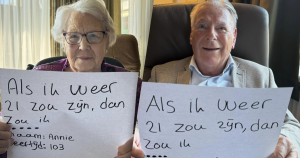 Als ik weer
21 zou zijn, dan
zou ik
Naam: Annie
Leeftijd: 103
Als ik weer
21 zou zijn, dan
zou ik